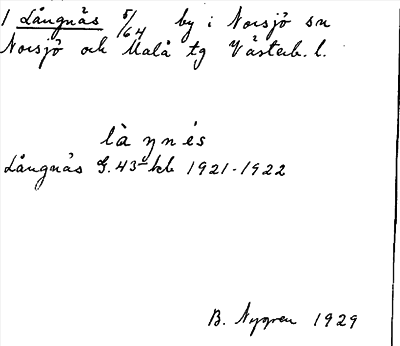 1 Långnäs 5/64 by i Norsjö sn
Norsjö och Malå tg Västerb. l.
là ŋnés
Långnäs G. 43 - kb 1921-1922
B. Nygren 1929